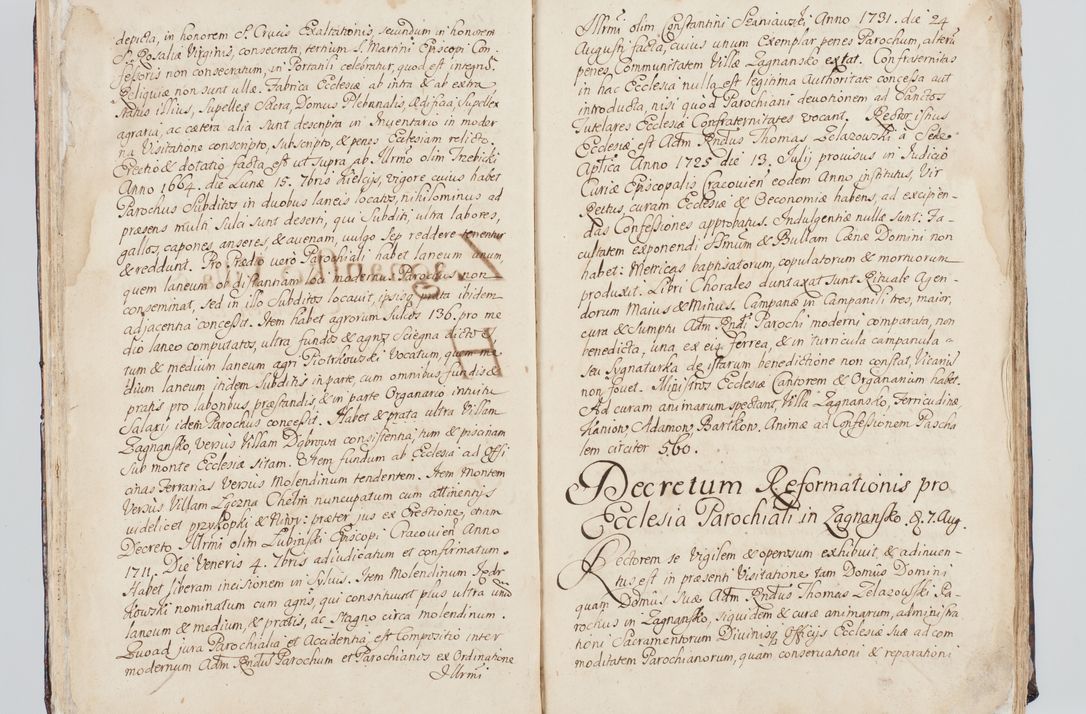 depicta, in honorem S. Crucis Exaltationis, secundum in honorem
S. Rosaliæ Virginis, consecrata, tertium S. Martini Episcopi Con
fessoris non consecratum, in Portatili celebratur, quod est integrũ.
Reliquiæ non sunt ullæ. Fabrica Ecclesiæ ab intra & ab extra
status illius, Supellex Sacra, Domus Plebanalis, Ædificia, Supellex
agraria, ac cætera alia sunt descripta in Inventario in moder
na Visitatione conscripto, subscripto, & penes Ecclesiam relicto.
Erectio & dotatio facta est ut supra ab Illrmo olim Trebicki
Anno 1664. die Lunæ 15. 7bris Kielcijs, vigore cuius habet
Parochus Subditos in duobus laneis locatos, nihilominus ad
præsens multi sulci sunt deserti, qui Subditi, ultra labores,
gallos, capones, anseres, & avenam, vulgo Sep reddere tenentur
& reddunt. Pro Prædio verò Parochiali habet laneum unum,
quem laneum ob distantiam loci modernus Parochus non
conseminat, sed in illo Subditos locavit, ipsisq prata ibidem
adjacentia concessit. Item habet agrorum Sulcos 136. pro me
dio laneo computatos, ultra fundos & agros Sciegna dictos
tum & medium laneum agri Piotrkowski vocatum, quem me
dium laneum itidem Subditis in parte, cum omnibus fundis &
pratis pro laboribus præstandis, & in parte Organario intuitu
Salarij idem Parochus concessit. Habet & prata ultra Villam
Zagnansko, versus Villam Dąbrowa consistentia, tum & piscinam
sub monte Ecclesiæ sitam. Item fundum ab Ecclesia ad Offi
cinas Ferrarias versus Molendinum tendentem. Item Montem
versus Villam Łęczna Chełm nuncupatum cum attinentijs
videlicet przykopki & Niwy: præter jus ex Erectione, etiam
Decreto Illrmi olim Łubiński Episcopi Cracovień Anno
1711. Die Veneris 4. 7bris adiudicatum et confirmatum.
Habet liberam incisionem in Sylvis. Item Molendinum Jędr
kowski nominatum cum agris, qui constituunt plus ultra unũ
laneum & medium, & pratis, ac Stagno circa molendinum.
Quoad jura Parochialia et Accidentia, est Compositio inter
modernum Adm Rndũ Parochum et Parochianos ex Ordinatione
Illrmi
Illrmi olim Constantini Szaniawski, Anno 1731. die 24
Augusti facta, cuius unum Exemplar penes Parochum, alterũ
penes Communitatem Villæ Zagnansko extat. Confraternitas
in hac Ecclesia nulla est legitima Authoritate concessa aut
introducta, nisi quod Parochiani devotionem ad Sanctos
Tutelares Ecclesiæ Confraternitates vocant. Rector istius
Ecclesiæ est Adm Rndus Thomas Zelazowski à Sede
Aptlica Anno 1725 die 13. Julij provisus in Judicio
Curiæ Episcopalis Cracovień eodem Anno institutus, Vir
Rectus, curam Ecclesiæ & Oeconomiæ habens, ad excipien-
das Confessiones approbatus. Indulgentiæ nullæ sunt: Fa-
cultatem exponendi SSmum & Bullam Cænæ Domini non
habet: Metricas baptisatorum, copulatorum & mortuorum
produxit. Libri Chorales duntaxat sunt. Rituale Agen-
dorum Maius & Minus. Campanæ in Campanili tres, maior,
cura & sumptu Adm. Rndi Parochi moderni comparata, non
benedicta, una ex eis ferrea, & in turricula campanula
seu Sygnaturka de istarum benedictione non constat. Vicariũ
non fovet. Ministros Ecclesiæ Cantorem & Organarium habet.
Ad curam animarum spectant, Villa Zagnansko, Ferricudinæ,
Kaniow, Adamow, Bartkow. Animæ ad Confessionem Pascha
lem circiter 560.
Decretum Reformationis pro
Ecclesia Parochiali in Zagnansko. 8. 7. Aug.
Rectorem se vigilem & operosum exhibuit, & adinven-
tus est in præsenti Visitatione tam Domûs Domini
quam Domûs Suæ Adm Rndus Thomas Zelazowski Pa-
rochus in Zagnansko, siquidem & curæ animarum, administra
tioni Sacramentorum Divinisq Officijs Ecclesiæ Suæ ad com
moditatem Parochianorum, quàm conservationi & reparationi